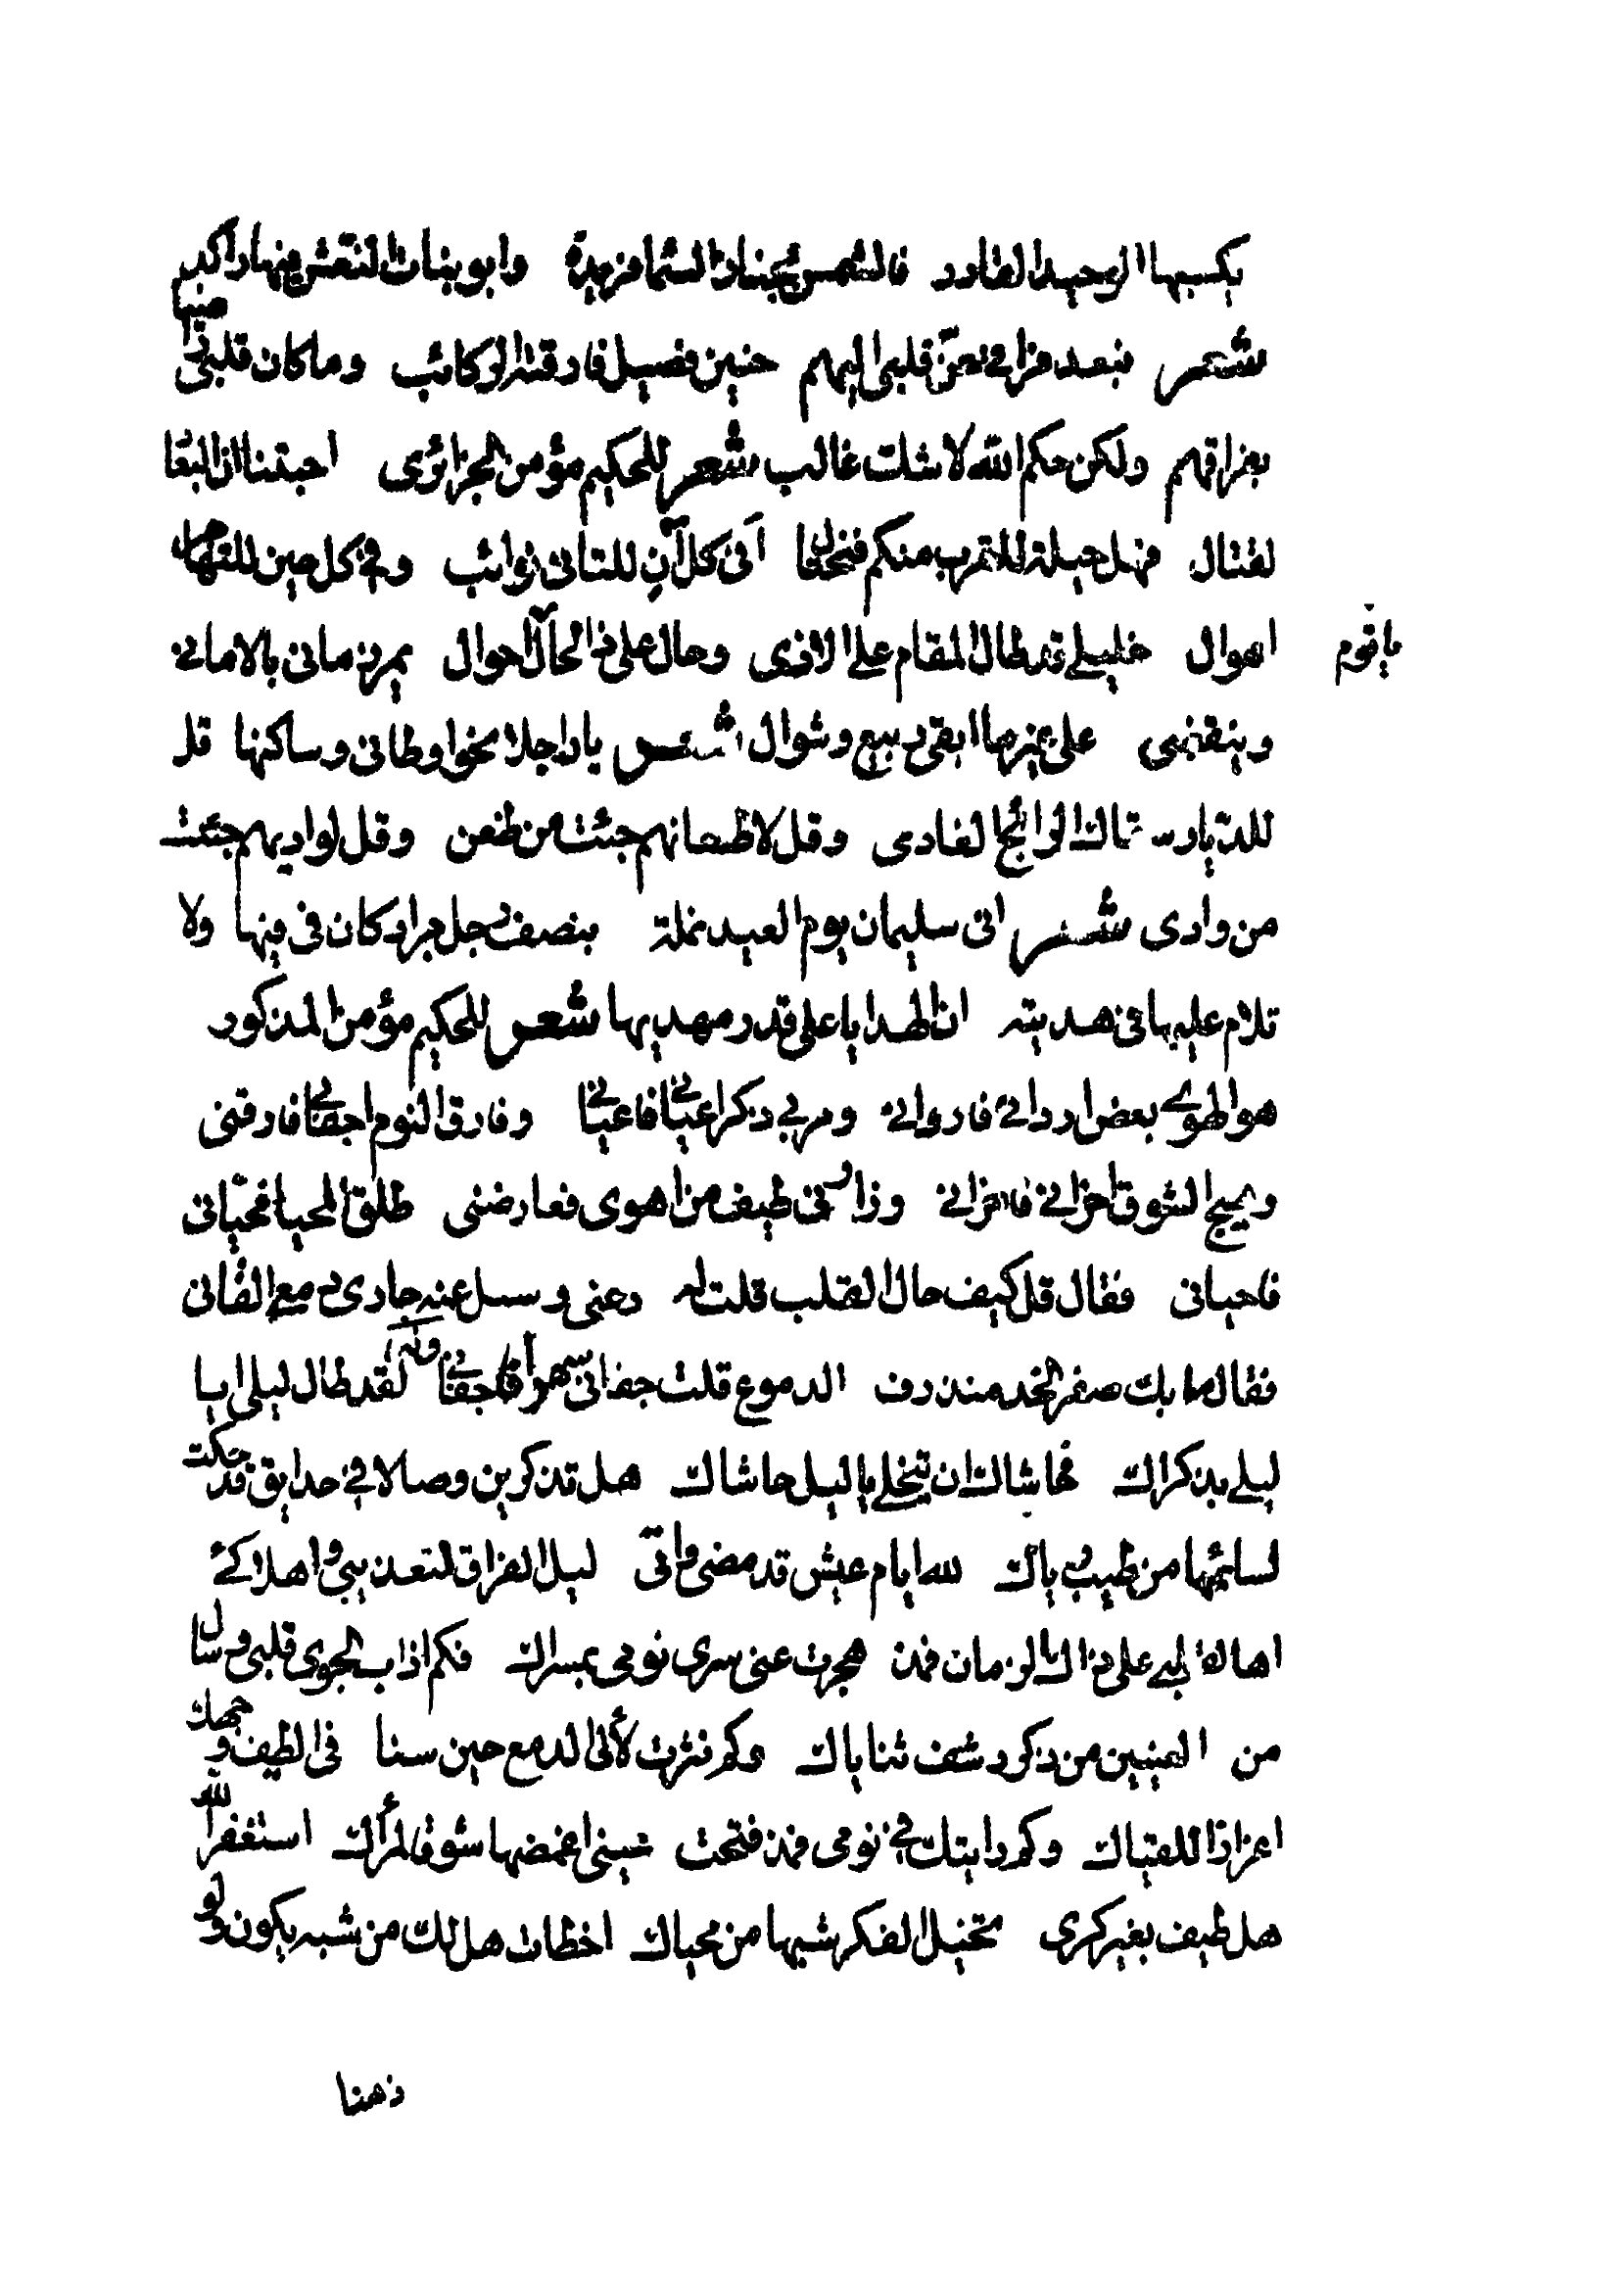 يكسبها الوحيد القادر فالشمس تجتاز السما فريدة وابو بنات النعش فيها راكد
شعر فبعد فراقي حن قلبي اليهم حنين فصيل فارقته الركائب وما كان قلبي راضيا
بفراقهم ولكن حكم الله لا شك غالب شعر للحكيم مؤمن الجزائري احبتنا ان البعاد
لقتال فهل حيلة للقرب منكم فنحتال افي كل آن للتنائي نوائب وفي كل حين للتهاجر
اهوال خليلي قد طال المقام على الاذى وحال على ذا الحال يا قوم احوال يمر زماني بالاماني
وينقضي على غير ما ابقى ربيع وشوال شعر يا راجلا نحو اوطاني وساكنها قل
للديار سقاك الرائح الغادي وقل لاظعانهم حييت من ظعن وقل لواديهم حييت
من وادي شعر اتى سليمان يوم العيد نملة بنصف رجل جراد كان في فيها ولا
تلام عليها في هديته ان الهدايا على قدر مهديها شعر للحكيم مؤمن المذكور
هو الهوى بعض ادوائي فاروائي ومر بي ذكر اعيائي فاعيائي وفارق النوم اجفاني فارقني
وهيج الشوق احزاني فاحزاني وزارني طيف من اهوى فعارضني طلق المحيا فحياني
فاحياني فقال قل كيف حال القلب قلت له دعني وسل عنه جاري دمعي القاني
فقال ما بك صفر الخد منذرف الدموع قلت جفاني سهر اجفاني وله لقد طال ليلي ايا
ليلى بذكراك فحاشاك ان تبخلي يا ليل حاشاك هل تذكرين وصالا في حدايق قد حكت
لسائمها من طيب رياك لله ايام عيش قد مضى واتى ليل الفراق لتعذيبي واهلاكي
اها لقلبي على ذاك الزمان فمذ هجرت عني سرى نومي بمسراك فكم اذاب الجوى قلبي وسال
من العينين من ذكر رشف ثناياك وكم نثرت لألئ الدمع حين سنا في الطيف وجهك
اعزازا للقياك وكم رايتك في نومي فمذ فتحت عيني اغمضها شوقا لمرآك استغفر الله
هل طيف بغير كرى تخيل الفكر شبها من محياك اخطات هل لك من شبه يكون ولو
ذهنا